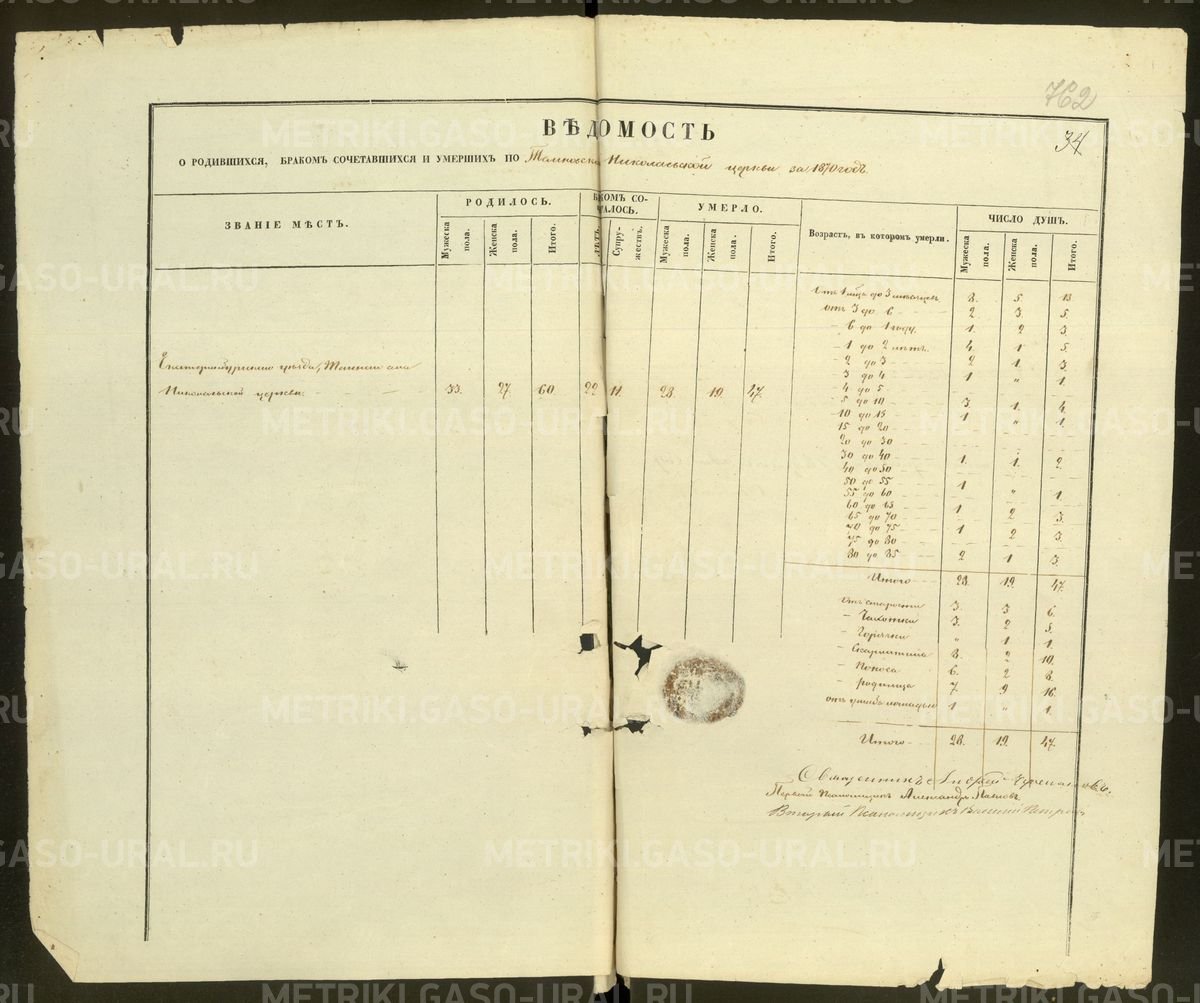 762
34
ВѢДОМОСТЬ
О РОДИВШИХСЯ, БРАКОМЪ СОЧЕТАВШИХСЯ И УМЕРШИХЪ ПО Николаевской церкви за 1870 годъ.
ЗВАНІЕ МѢСТЪ.
РОДИЛОСЬ.
Мужеска пола.
Женска пола.
Итого.
КОМЪ СО-
ТАЛОСЬ.
ЛѢТЪ.
Супру-
жествъ.
УМЕРЛО.
Мужеска пола.
Женска пола.
Итого.
Возрастъ, въ которомъ умерли.
ЧИСЛО ДУШЪ.
Мужеска пола.
Женска пола.
Итого.
Екатеринбургскаго уѣзда, села
Николаьской церкви. 33. 27. 60. 22 11. 28. 19. 47.
до 3 мѣсяцевъ 8. 5. 13.
отъ 3 до 6 2. 3. 5.
– 6 до 1 году. 1. 2 3.
– 1 до 2 лѣтъ. 4. 1 5.
– 2 до 3 2 1. 3.
3 до 4 1 " 1.
4 до 5
5 до 10 3. 1. 4.
10 до 15 1. " 1.
15 до 20
20 до 30
30 до 40 1. 1. 2.
40 до 50
50 до 55 1
55 до 60 " 1.
60 до 65
65 до 70 1 2 3.
70 до 75 1 2 3.
75 до 80
80 до 85 2 1 3.
Итого 28. 19. 47.
Отъ старости 3. 3 6.
– Чахотки 3. 2 5.
– Горячки " 1 1.
– Скарлатина 8. 2 10.
– Поноса 6. 2 8.
– родимца 7. 9 16.
отъ лошадью 1 " 1.
Итого 28. 19. 47.
Священникъ
Первый Псаломщикъ Александръ Поповъ
Второй Псаломщикъ Василій Петровъ
METRIKI.GASO-URAL.RU